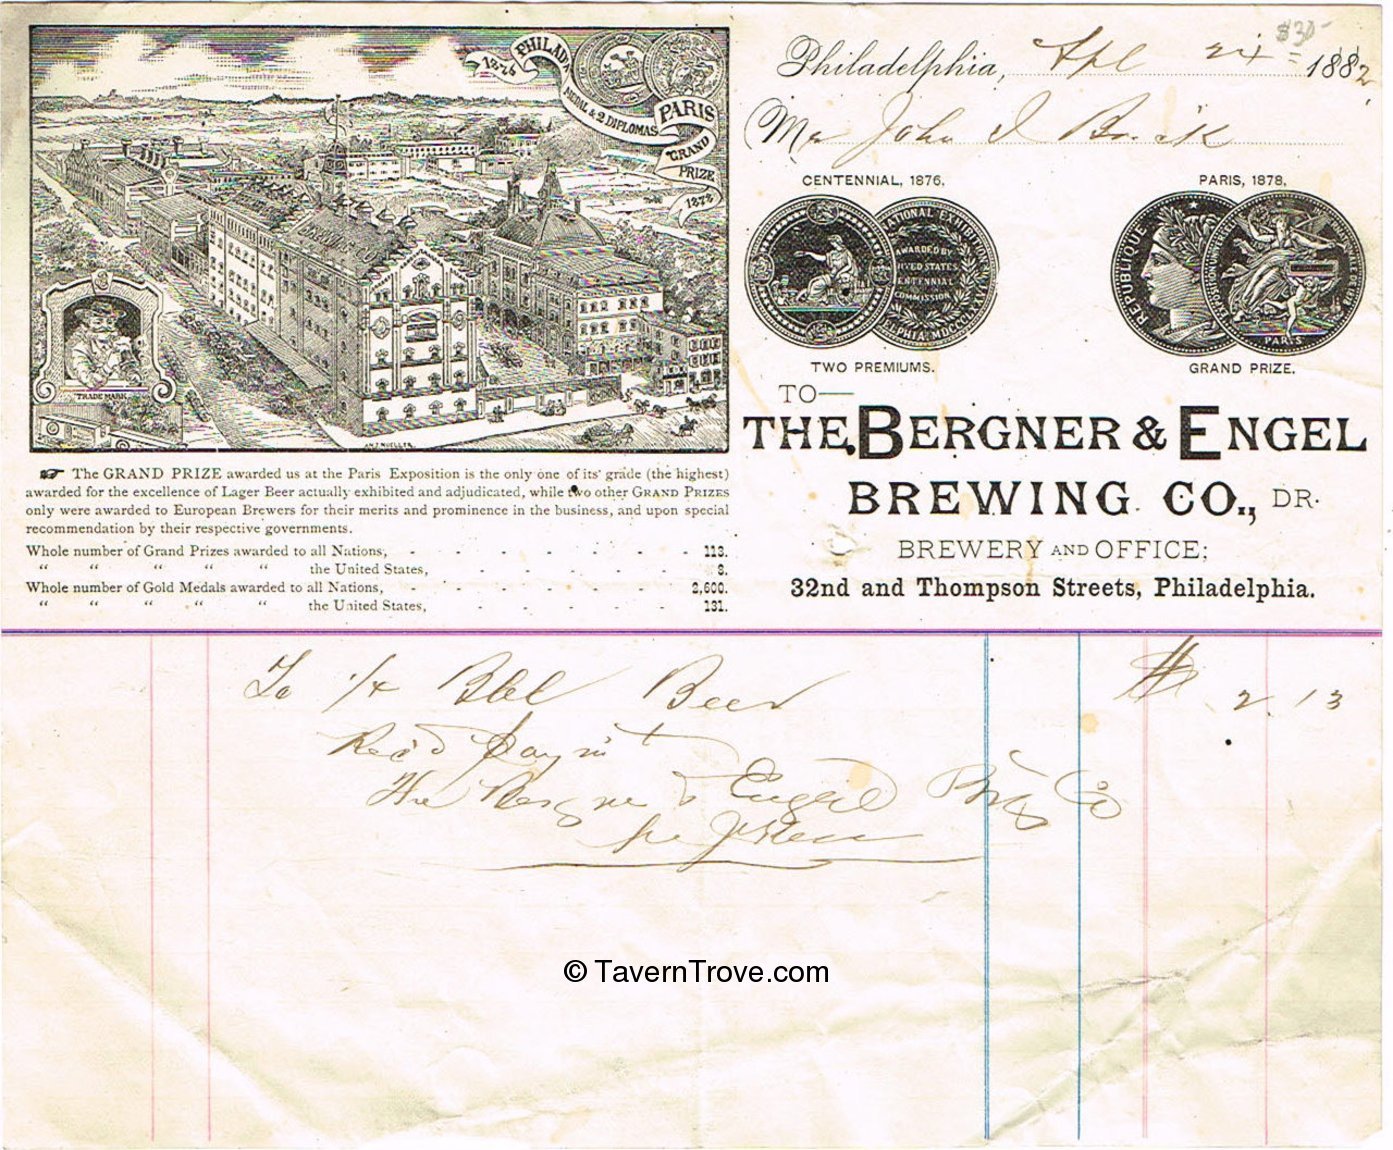 1876 PHILADA MEDAL & 2 DIPLOMAS
PARIS GRAND PRIZE 1878
TRADE MARK
ANT. MUELLER
☛ The GRAND PRIZE awarded us at the Paris Exposition is the only one of its' grade (the highest)
awarded for the excellence of Lager Beer actually exhibited and adjudicated, while two other GRAND PRIZES
only were awarded to European Brewers for their merits and prominence in the business, and upon special
recommendation by their respective governments.
Whole number of Grand Prizes awarded to all Nations, - - - - - - - 113.
“ “ “ “ “ the United States, - - - - - 3.
Whole number of Gold Medals awarded to all Nations, - - - - - - - 2,600.
“ “ “ “ “ the United States, - - - - - 131.
$30-
Philadelphia, Apl 1882
Mr John I
CENTENNIAL, 1876.
PARIS, 1878.
AWARDED BY
UNITED STATES
CENTENNIAL
COMMISSION
REPUBLIQUE
PARIS
TWO PREMIUMS.
GRAND PRIZE.
TO—
THE BERGNER & ENGEL
BREWING CO., DR.
BREWERY AND OFFICE;
32nd and Thompson Streets, Philadelphia.
To 1/4 Bbl Beer $ 2.13
Rec'd paym't
The Bergner & Engel Brg Co
© TavernTrove.com